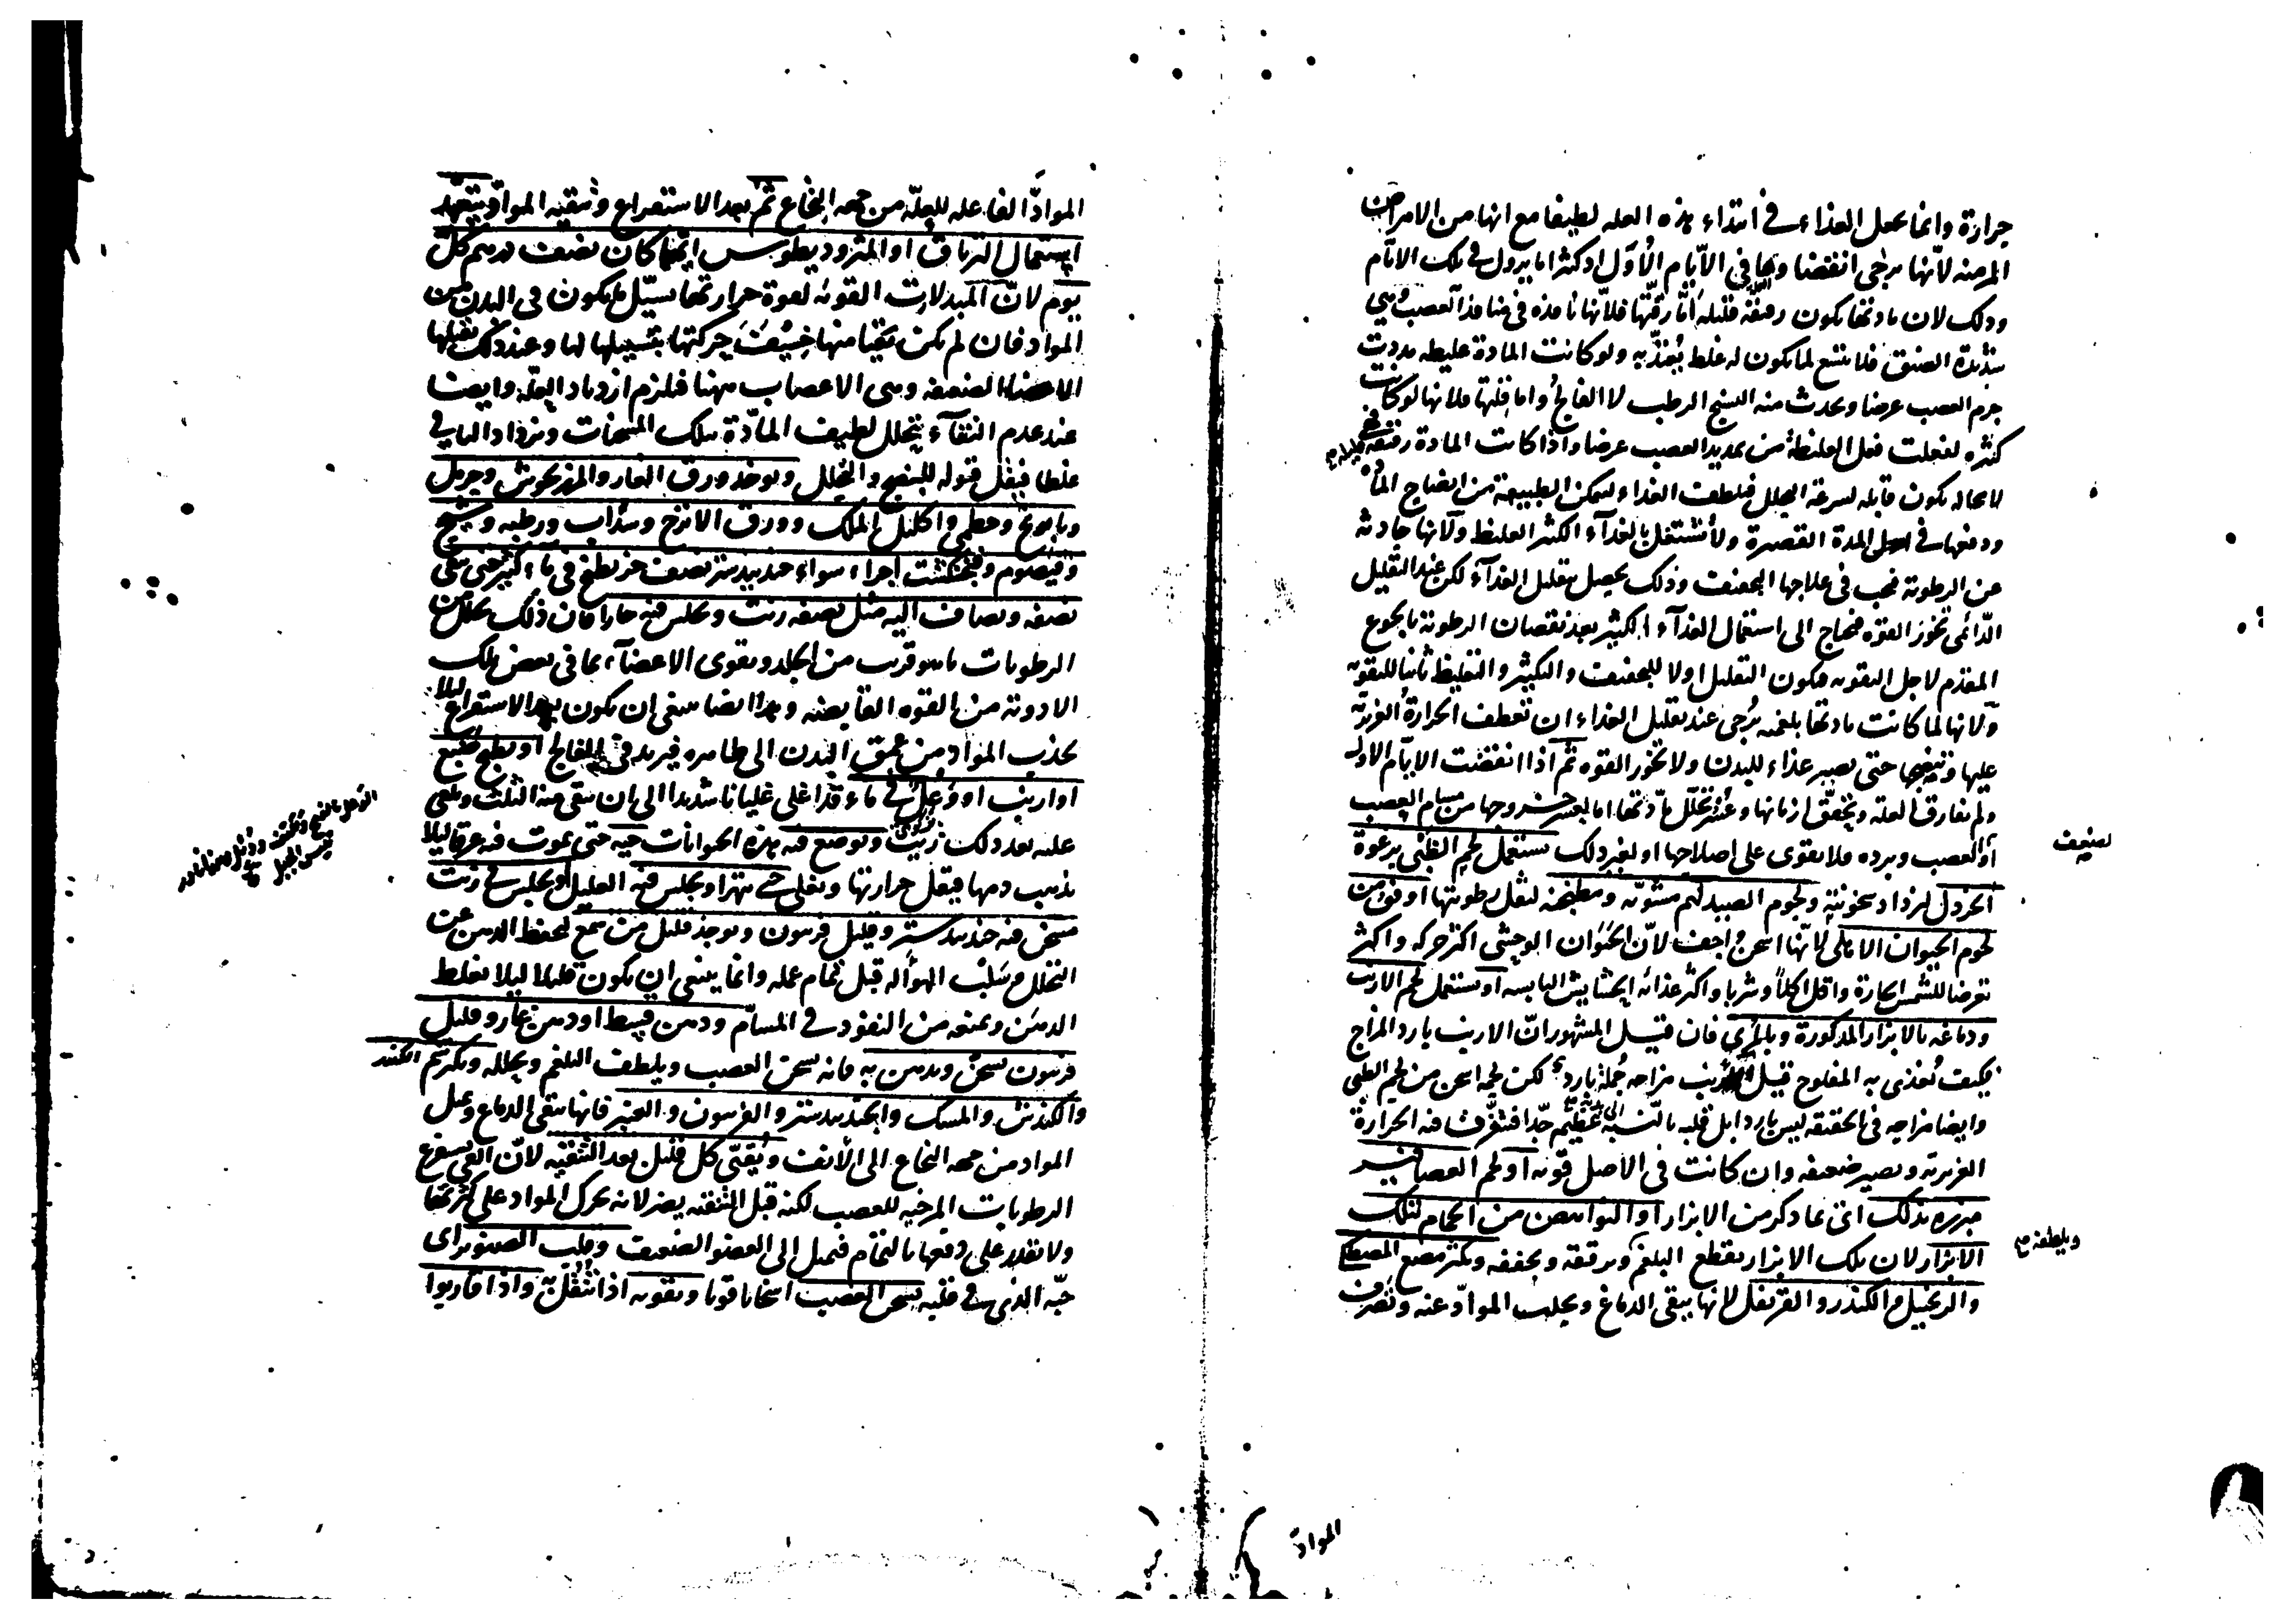 حرارة وانما يجعل الغذاء في ابتداء هذه العله لطيفا مع انها من الامراض
المزمنه لانها يرجى انقضاوها في الايام الاول اذ كثيرا ما يزول في تلك الايام
وذلك لان مادتها يكون رقيقة قليلة اما رقتها فلانها نافذه في منافذ العصب وهي
شديدة الضيق فلا يتسع لما يكون له غلظ يعتد به ولو كانت المادة غليظه مددت
جرم العصب عرضا ويحدث منه التشنج الرطب لا الفالج واما قلتها فلانها لو كانت
كثيره لفعلت فعل الغليظة من تمديد العصب عرضا واذا كانت المادة رقيقة
لا محاله يكون قابله لسرعة التحلل فيلطف الغذاء ليتمكن الطبيعة من انضاج المادة
ودفعها في المدة القصيرة ولا تشتغل بالغذاء الكثير الغليظ ولانها حادثه
عن الرطوبة فيجب في علاجها التجفيف وذلك يحصل بتقليل الغذاء لكن عند التقليل
الدائمي تخور القوة فيحتاج الى استعمال الغذاء الكثير بعد نقصان الرطوبة بالجوع
المقدم لاجل التقويه فيكون التقليل اولا للتجفيف والتكثير والتغليظ ثانيا للتقويه
ولانها لما كانت مادتها بلغميه يرجى عند تقليل الغذاء ان تعطف الحرارة الغريزيه
عليها وتنضجها حتى يصير غذاء للبدن ولا تخور القوه ثم اذا انقضت الايام الاول
ولم تفارق العله وتحقق ازمانها وعسر تحلل مادتها اما لعسر خروجها من مسام العصب
او العصب وبرده فلا يقوى على اصلاحها او لغير ذلك يستعمل لحم الظبي برغوة
لضعف
الخردل ليزداد سخونته ولحوم الصيد لهم مشويه ومطبخه لتقل رطوبتها اوفق من
لحوم الحيوان الاهلي لانها اسخن واجف لان الحيوان الوحشي اكثر حركه واكثر
تعرضا للشمس الحارة واقل اكلا وشربا واكثر غذائه الحشايش اليابسه او يستعمل لحم الارنب
ودماغه بالابزار المذكورة وبالمري فان قيل المشهور ان الارنب بارد المزاج
فكيف تغذي به المفلوج قيل الارنب مزاجه جملة بارد لكن لحمه اسخن من لحم الظبي
وايضا مزاجه في الحقيقه ليس باردا بل قلبه بالنسبه الى بدنه عظيم جدا فتتفرق فيه الحرارة
الغريزيه ويصير ضعيفه وان كانت في الاصل قويه او لحم العصافير
مبزره بذلك اي بما ذكر من الابزار او النواهض من الحمام لتلك
الابزار لان تلك الابزار يقطع البلغم ويرققه ويجففه ويكثر مضغ المصطكى
ويلطفه صح
والزنجبيل والكندر والقرنفل لانها ينقي الدماغ ويجلب المواد عنه وتصرف
المواد
المواد الفاعله للعلة من جهه النخاع ثم بعد الاستفراغ وتنقيه المواد يتعهد
استعمال الترياق او المثروديطوس ايهما كان نصف درهم كل
يوم لان المبدلات القويه لقوة حرارتها تسيل ما يكون في البدن من
المواد فان لم يكن نقيا منها خيفت حركتها بتسييلها لها وعند ذلك تقبلها
الاعضاء الضعيفه وهي الاعصاب ههنا فيلزم ازدياد العله وايضا
عند عدم النقاء يتحلل لطيف المادة بتلك المسخنات ويزداد الباقي
غلظا فيقل قبوله للنضج والتحلل ويوخذ ورق الغار والمرزنجوش وحرمل
وبابونج وخطمي واكليل الملك وورق الاترج وسذاب ورطبه وشيح
وقيصوم وفنجنكشت اجزاء سواء جندبيدستر نصف جزء يطبخ في ماء كثير حتى يبقى
نصفه ويضاف اليه مثل نصفه زيت ويجلس فيه حارا فان ذلك يحلل من
الرطوبات ما هو قريب من الجلد ويقوى الاعضاء بما في بعض تلك
الادوية من القوه القابضه وهذا ايضا ينبغي ان يكون بعد الاستفراغ ليلا
يجذب المواد من عمق البدن الى ظاهره فيزيد في الفالج او يطبخ ضبع
او ارنب او وعل في ماء قد اغلي غليانا شديدا الى ان يبقى منه الثلث ويلقى
عليه بعد ذلك زيت ويوضع فيه هذه الحيوانات حيه حتى يموت فيه غرقا ليلا
يذهب دمها فيقل حرارتها ويغلى حتى يتهرا ويجلس فيه العليل او يجلس في زيت
مسخن فيه جندبيدستر وقليل فربيون ويوخذ قليل من شمع لحفظ الدهن عن
التحلل وسلب الهواء له قبل تمام عمله وانما ينبغي ان يكون قليلا ليلا يغلظ
الدهن ويمنعه من النفوذ في المسام ودهن قسط او دهن غار وقليل
فربيون يسخن ويدهن به فانه يسخن العصب ويلطف البلغم ويحلله ويكثر شم الكندر
والكندش والمسك والجندبيدستر والفربيون والعنبر فانها ينقي الدماغ وتميل
المواد من جهه النخاع الى الانف ويقيى كل قليل بعد التنقيه لان القي يستفرغ
الرطوبات المرخيه للعصب لكنه قبل التنقيه يضر لانه يحرك المواد على كثرتها
ولا يقدر على دفعها بالتمام فيميل الى العضو الضعيف وقلب الصنوبر اى
حبه الذي في قلبه يسخن العصب اسخانا قويا ويقويه اذا تنقل به واذا قاربوا